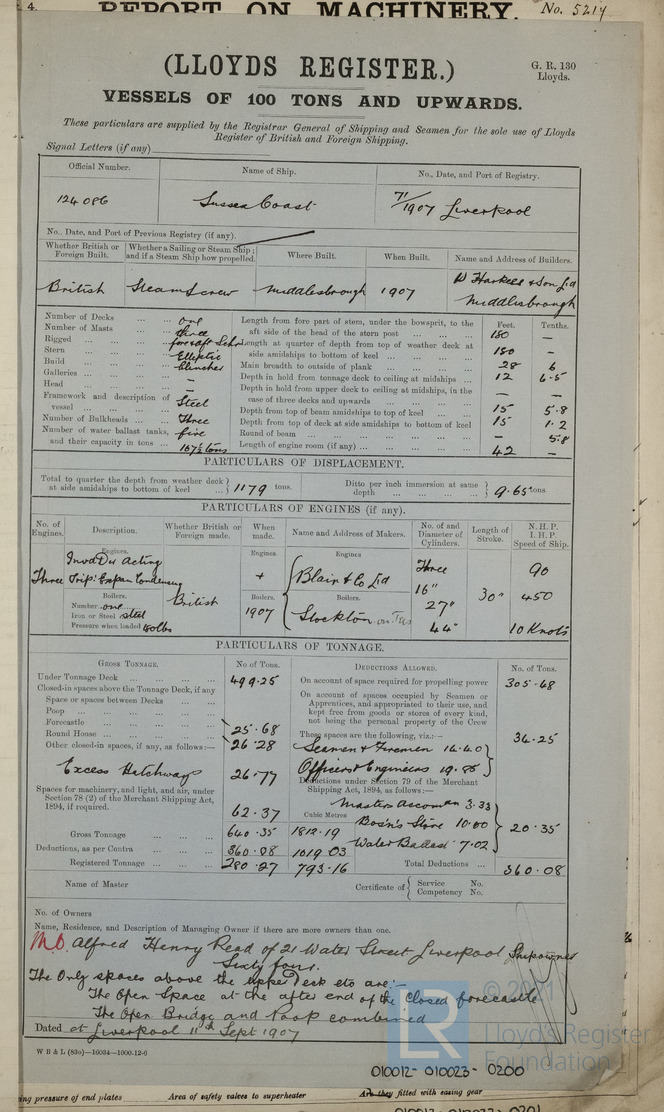 4. REPORT ON MACHINERY. No. 5214
(LLOYDS REGISTER.)
G. R. 130
Lloyds.
VESSELS OF 100 TONS AND UPWARDS.
These particulars are supplied by the Registrar General of Shipping and Seamen for the sole use of Lloyds
Register of British and Foreign Shipping.
Signal Letters (if any)
Official Number. Name of Ship. No., Date, and Port of Registry.
124086 Sussex Coast 71/1907 Liverpool
No., Date, and Port of Previous Registry (if any).
Whether British or Foreign Built. Whether a Sailing or Steam Ship; and if a Steam Ship how propelled. Where Built. When Built. Name and Address of Builders.
British Steam Screw Middlesbrough 1907 R Harkess & Son Ld Middlesbrough
Number of Decks one
Number of Masts three
Rigged fore & aft Schr
Stern Elliptic
Build Clincher
Galleries –
Head –
Framework and description of vessel Steel
Number of Bulkheads Three
Number of water ballast tanks, five
and their capacity in tons 107½ tons
Feet. Tenths.
Length from fore part of stem, under the bowsprit, to the aft side of the head of the stern post 180 –
Length at quarter of depth from top of weather deck at side amidships to bottom of keel 180 –
Main breadth to outside of plank 28 6
Depth in hold from tonnage deck to ceiling at midships 12 6.5
Depth in hold from upper deck to ceiling at midships, in the case of three decks and upwards – –
Depth from top of beam amidships to top of keel 15 5.8
Depth from top of deck at side amidships to bottom of keel 15 1.2
Round of beam – 5.8
Length of engine room (if any) 42 –
PARTICULARS OF DISPLACEMENT.
Total to quarter the depth from weather deck at side amidships to bottom of keel 1179 tons.
Ditto per inch immersion at same depth 9.65 tons
PARTICULARS OF ENGINES (if any).
No. of Engines. Description. Whether British or Foreign made. When made. Name and Address of Makers. No. of and Diameter of Cylinders. Length of Stroke. N.H.P. I.H.P. Speed of Ship.
Engines. Engines. Engines
Three Invd Dir Acting
Trip: Expan Condensing
British + Blair & Co Ld Three 16" 27" 44" 30" 90 450 10 Knots
Boilers. Boilers. Boilers.
Number one
Iron or Steel steel
Pressure when loaded
1907 Stockton on Tees
PARTICULARS OF TONNAGE.
GROSS TONNAGE. No of Tons.
Under Tonnage Deck 499.25
Closed-in spaces above the Tonnage Deck, if any
Space or spaces between Decks
Poop
Forecastle
Round House 25.68
Other closed-in spaces, if any, as follows:— 26.28
Excess Hatchways 26.77
Spaces for machinery, and light, and air, under Section 78 (2) of the Merchant Shipping Act, 1894, if required. 62.37
Cubic Metres
Gross Tonnage 640.35 1812.19
Deductions, as per Contra 360.08 1019.03
Registered Tonnage 280.27 793.16
DEDUCTIONS ALLOWED. No. of Tons.
On account of space required for propelling power 305.48
On account of spaces occupied by Seamen or Apprentices, and appropriated to their use, and kept free from goods or stores of every kind, not being the personal property of the Crew 34.25
These spaces are the following, viz.:—
Seamen & Firemen 14.40
Officers & Engineers 19.85
Deductions under Section 79 of the Merchant Shipping Act, 1894, as follows:—
Masters Accomon 3.33
Bosn's Store 10.00 20.35
Water Ballast 7.02
Total Deductions 360.08
Name of Master
Certificate of Service No.
Competency No.
No. of Owners
Name, Residence, and Description of Managing Owner if there are more owners than one.
M.O. Alfred Henry Read of 21 Water Street Liverpool Shipowner
Sixty four.
The Only spaces above the upper Deck etc are:–
The Open Space at the after end of the closed forecastle
The Open Bridge and Poop combined
Dated at Liverpool 11th Sept 1907
W B & L (83o)—16034—1000-12-6
LR © 2021 Lloyd's Register Foundation
010012- 010023- 0200
ing pressure of end plates Area of safety valves to superheater Are they fitted with easing gear
010012-010023-0201